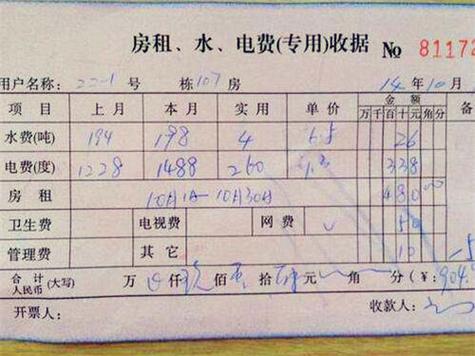 房租、水、电费(专用)收据 № 81172
用户名称: 22-1 号 栋 107 房 14 年 10 月
项目 上月 本月 实用 单价 金额 备
万 千 百 十 元 角 分
水费(吨) 194 198 4 6.5 26
电费(度) 1228 1488 260 1.3 338
房租 10月1日-10月30日 480 00
卫生费 电视费 网费 50
管理费 其它 10
合计人民币(大写) 万 仟 玖 佰 拾 元 角 分(¥: 904.
开票人: 收款人: